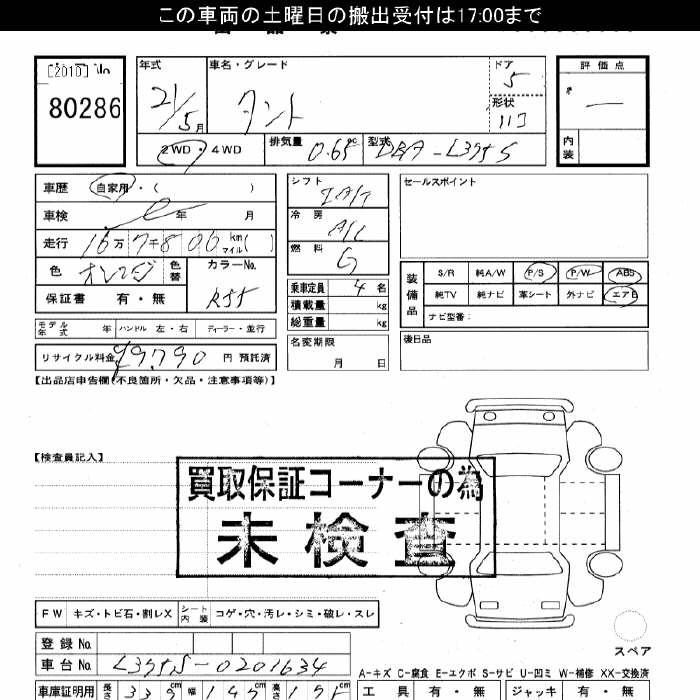 この車両の土曜日の搬出受付は17:00まで
[2010] No
80286
年式
21/5月
車名・グレード
タント
ドア
5
形状
ハコ
評価点
—
内装
2WD・4WD
排気量
0.65 cc
型式
DBA-L375S
車歴 自家用・( )
車検 年 月
走行 16万7千806 km マイル( )
色 オレンジ 色替
カラーNo.
R55
保証書 有・無
モデル年式 年 ハンドル 左・右 ディーラー・並行
リサイクル料金 ¥9,790 円 預託済
シフト
IAT
冷房
A/C
燃料
G
乗車定員 4 名
積載量 kg
総重量 kg
名変期限
月 日
セールスポイント
装備品
S/R 純A/W P/S P/W ABS
純TV 純ナビ 革シート 外ナビ エアB
ナビ型番:
後日品
【出品店申告欄(不良箇所・欠品・注意事項等)】
【検査員記入】
買取保証コーナーの為
未検査
FW キズ・トビ石・割レX シート内装 コゲ・穴・汚レ・シミ・破レ・スレ
登録No.
車台No. L375S-0201634
スペア
A-キズ C-腐食 E-エクボ S-サビ U-凹ミ W-補修 XX-交換済
車庫証明用 長さ 339 cm 幅 147 cm 高さ 175 cm
工具 有・無 ジャッキ 有・無